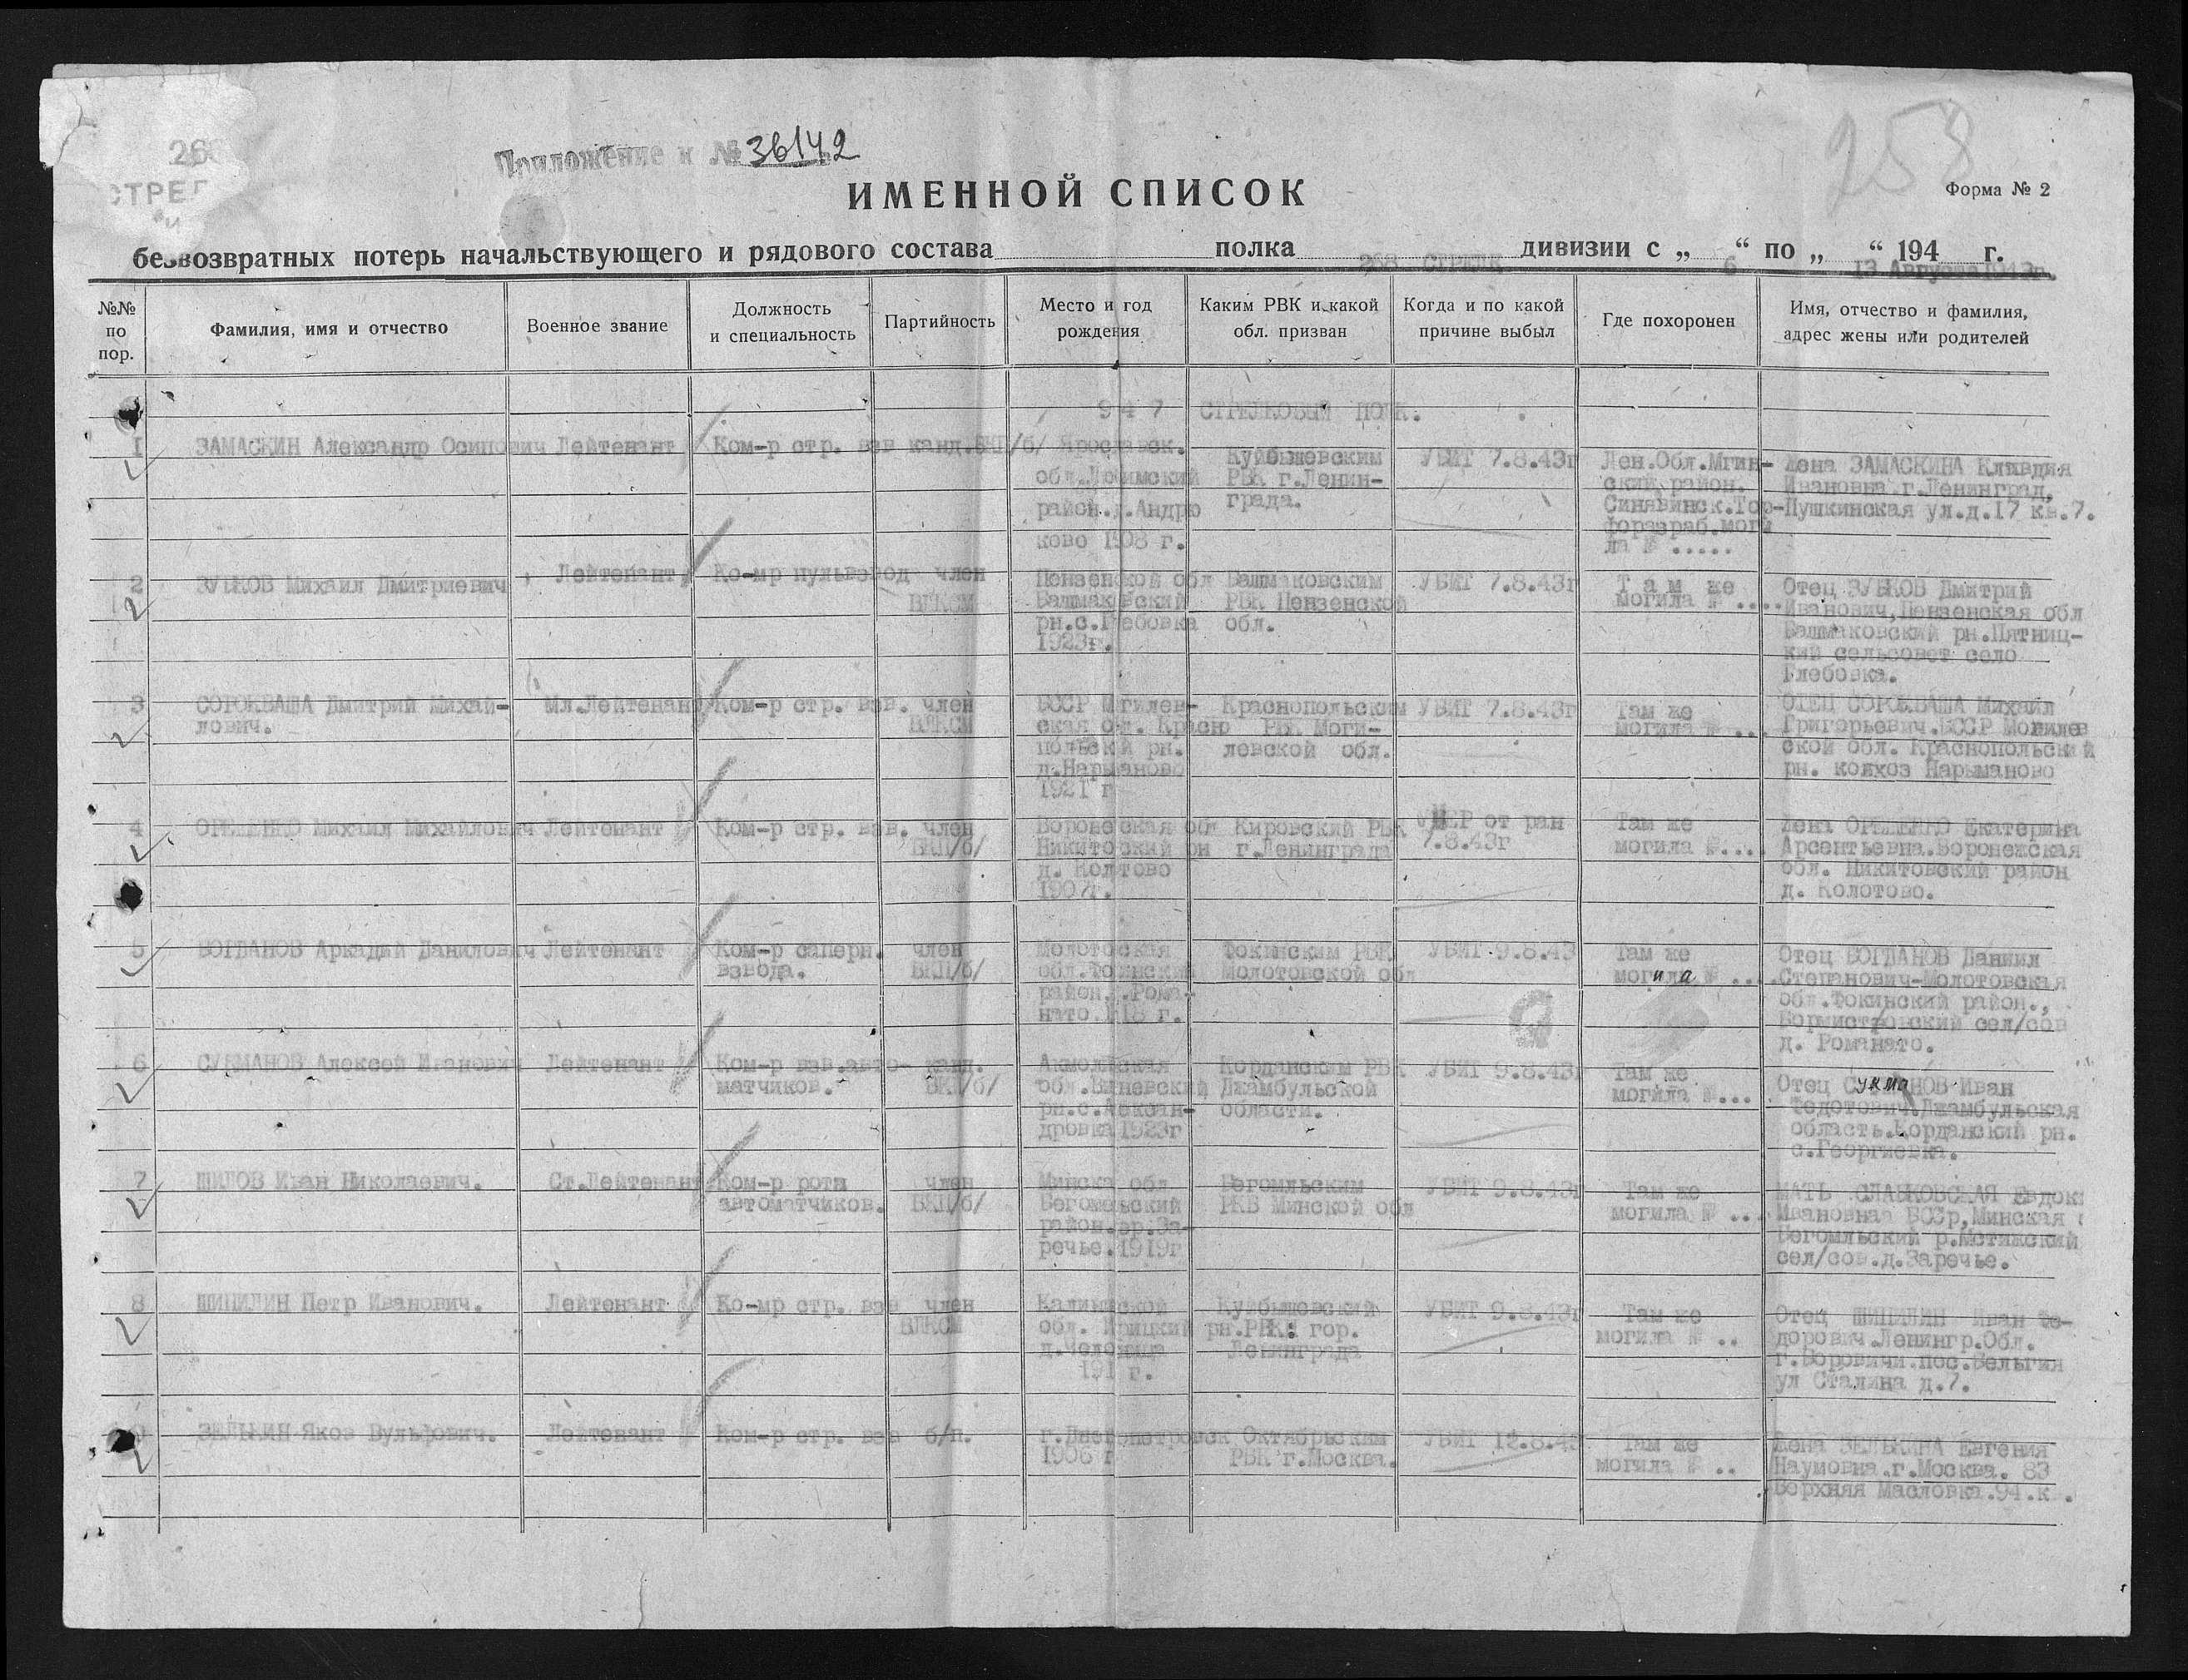 268
СТРЕЛ
Приложение к № 36142
258
ИМЕННОЙ СПИСОК
Форма № 2
безвозвратных потерь начальствующего и рядового состава полка дивизии с „ “ по „ “ 194 г.
268 СТРЕЛК 6 13 Августа 1943г.
№№ по пор.
Фамилия, имя и отчество
Военное звание
Должность и специальность
Партийность
Место и год рождения
Каким РВК и какой обл. призван
Когда и по какой причине выбыл
Где похоронен
Имя, отчество и фамилия, адрес жены или родителей
947 СТРЕЛКОВЫЙ ПОЛК.
1 ЗАМАСКИН Александр Осипович Лейтенант Ком-р стр. взв канд.ВКП/б/ Ярославск.
обл.Любимский
район.д.Андрю
ково 1908 г.
Куйбышевским
РВК г.Ленин-
града.
УБИТ 7.8.43г
Лен.Обл.Мгин-
ский район.
Синявинск.Тор-
форазраб.моги
ла № .....
Жена ЗАМАСКИНА Клавдия
Ивановна г.Ленинград,
Пушкинская ул.д.17 кв.7.
2 ЗУБКОВ Михаил Дмитриевич Лейтенант Ко-мр пульвзвод член
ВЛКСМ
Пензенской обл
Башмаковский
рн.с.Глебовка
1923г.
Башмаковским
РВК Пензенской
обл.
УБИТ 7.8.43г
Там же
могила № ....
Отец ЗУБКОВ Дмитрий
Иванович,Пензенская обл
Башмаковский рн.Пятниц-
кий сельсовет село
Глебовка.
3 СОРОКВАША Дмитрий Михай-
лович.
Мл.Лейтенант Ком-р стр. взв. член
ВЛКСМ
БССР Могилев-
ская обл. Красно
польский рн.
д.Нарманово
1921 г
Краснопольским
РВК Моги-
левской обл.
УБИТ 7.8.43г
Там же
могила № ...
ОТЕЦ СОРОКВАША Михаил
Григорьевич.БССР Могилев
ской обл. Краснопольский
рн. колхоз Нарыманово
4 ОРЕШЕНКО Михаил Михайлович Лейтенант Ком-р стр. взв. член
ВКП/б/
Воронежская обл
Никитовский рн
1907г.
Кировский РВК
г.Ленинграда
УМЕР от ран
7.8.43г
Там же
могила №....
Жена ОРЕШЕНКО Екатерина
Арсентьевна.Воронежская
обл. Никитовский район
д. Колотово.
5 БОГДАНОВ Аркадий Данилович Лейтенант Ком-р саперн.
взвода.
член
ВКП/б/
Молотовская
обл.Фокинский
район.д.Рома-
нято.1918 г.
Фокинским РВК
Молотовской обл
УБИТ 9.8.43
Там же
могила № ....
Отец БОГДАНОВ Даниил
Степанович-Молотовская
обл.Фокинский район.,
сел/сов
д. Романято.
6 СУКМАНОВ Алексей Иванович Лейтенант Ком-р взв.авто-
матчиков.
канд.
ВКП/б/
Акмолинская
обл.Вишневский
рн.с.Алексан-
дровка 1923г
Кордайским РВК
Джамбульской
области.
УБИТ 9.8.43г
Там же
могила №...
Отец СУКМАНОВ Иван
Федотович.Джамбульская
область.Кордайский рн.
с.Георгиевка.
7 ШИЛОВ Иван Николаевич. Ст.Лейтенант Ком-р роти
автоматчиков.
член
ВКП/б/
Минска обл
Бегомльский
район.др.За-
речье.1919г
Бегомльским
РКВ Минской обл
УБИТ 9.8.43г
Там же
могила № ...
МАТЬ СЛАБКОВСКАЯ Евдок
Ивановна БССр,Минская
Бегомльский р.Мстижский
сел/сов.д.Заречье.
8 ШИПИЛИН Петр Иванович. Лейтенант Ко-мр стр. взв член
ВЛКСМ
Калининской
обл.
191 г.
Куйбышевский
рн.РВКК гор.
Ленинграда
УБИТ 9.8.43г
Там же
могила № ..
Отец ШИПИЛИН Иван Фе-
дорович.Ленингр.Обл.
г.Боровичи.пос.Вельгия
ул Сталина д.7.
9 ЗЕЛЬКИН Яков Вульфович. Лейтенант Ком-р стр. взв б/п.
г.Днепропетровск
1906 г
Октябрьским
РВК г.Москва.
УБИТ 12.8.43
Там же
могила № ..
Жена ЗЕЛЬКИНА Евгения
Наумовна.г.Москва. 83
Верхняя Масловка.94.к .